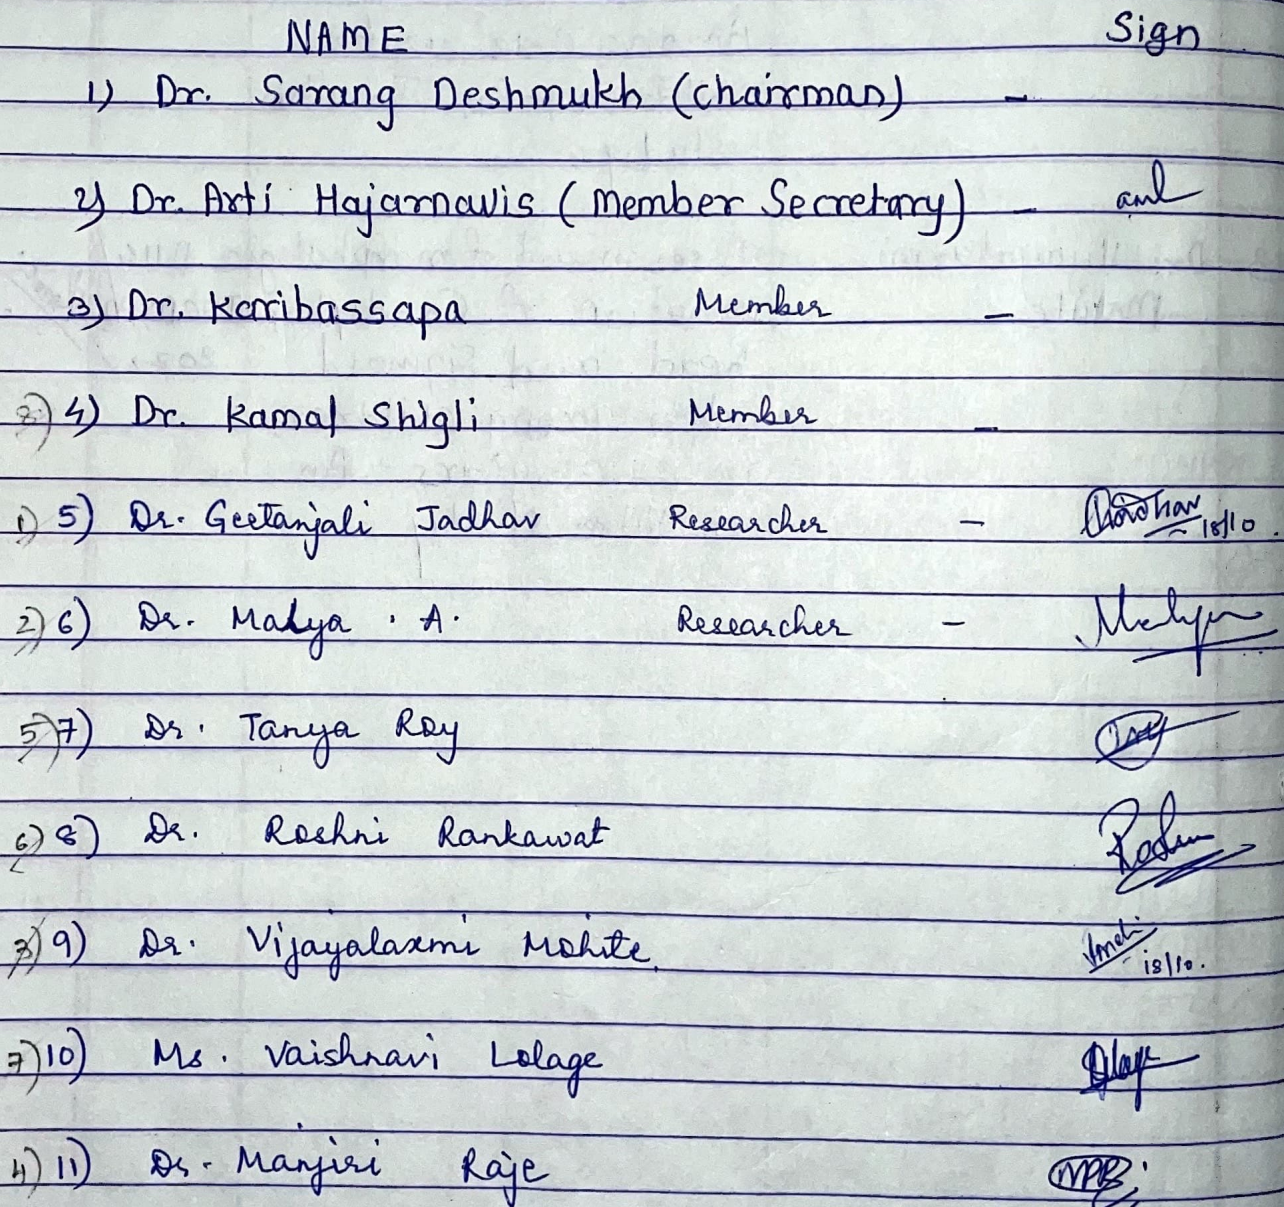 NAME Sign
1) Dr. Sarang Deshmukh (chairman) -
2) Dr. Arti Hajarnavis (Member Secretary) -
3) Dr. Karibassapa Member -
3) 4) Dr. Kamal Shigli Member -
1) 5) Dr. Geetanjali Jadhav Researcher - 18/10.
2) 6) Dr. Malya . A. Researcher -
5) 7) Dr. Tanya Roy
6) 8) Dr. Roshni Rankawat
3) 9) Dr. Vijayalaxmi Mohite. 18/10.
7) 10) Ms. Vaishnavi Lolage
4) 11) Dr. Manjiri Raje